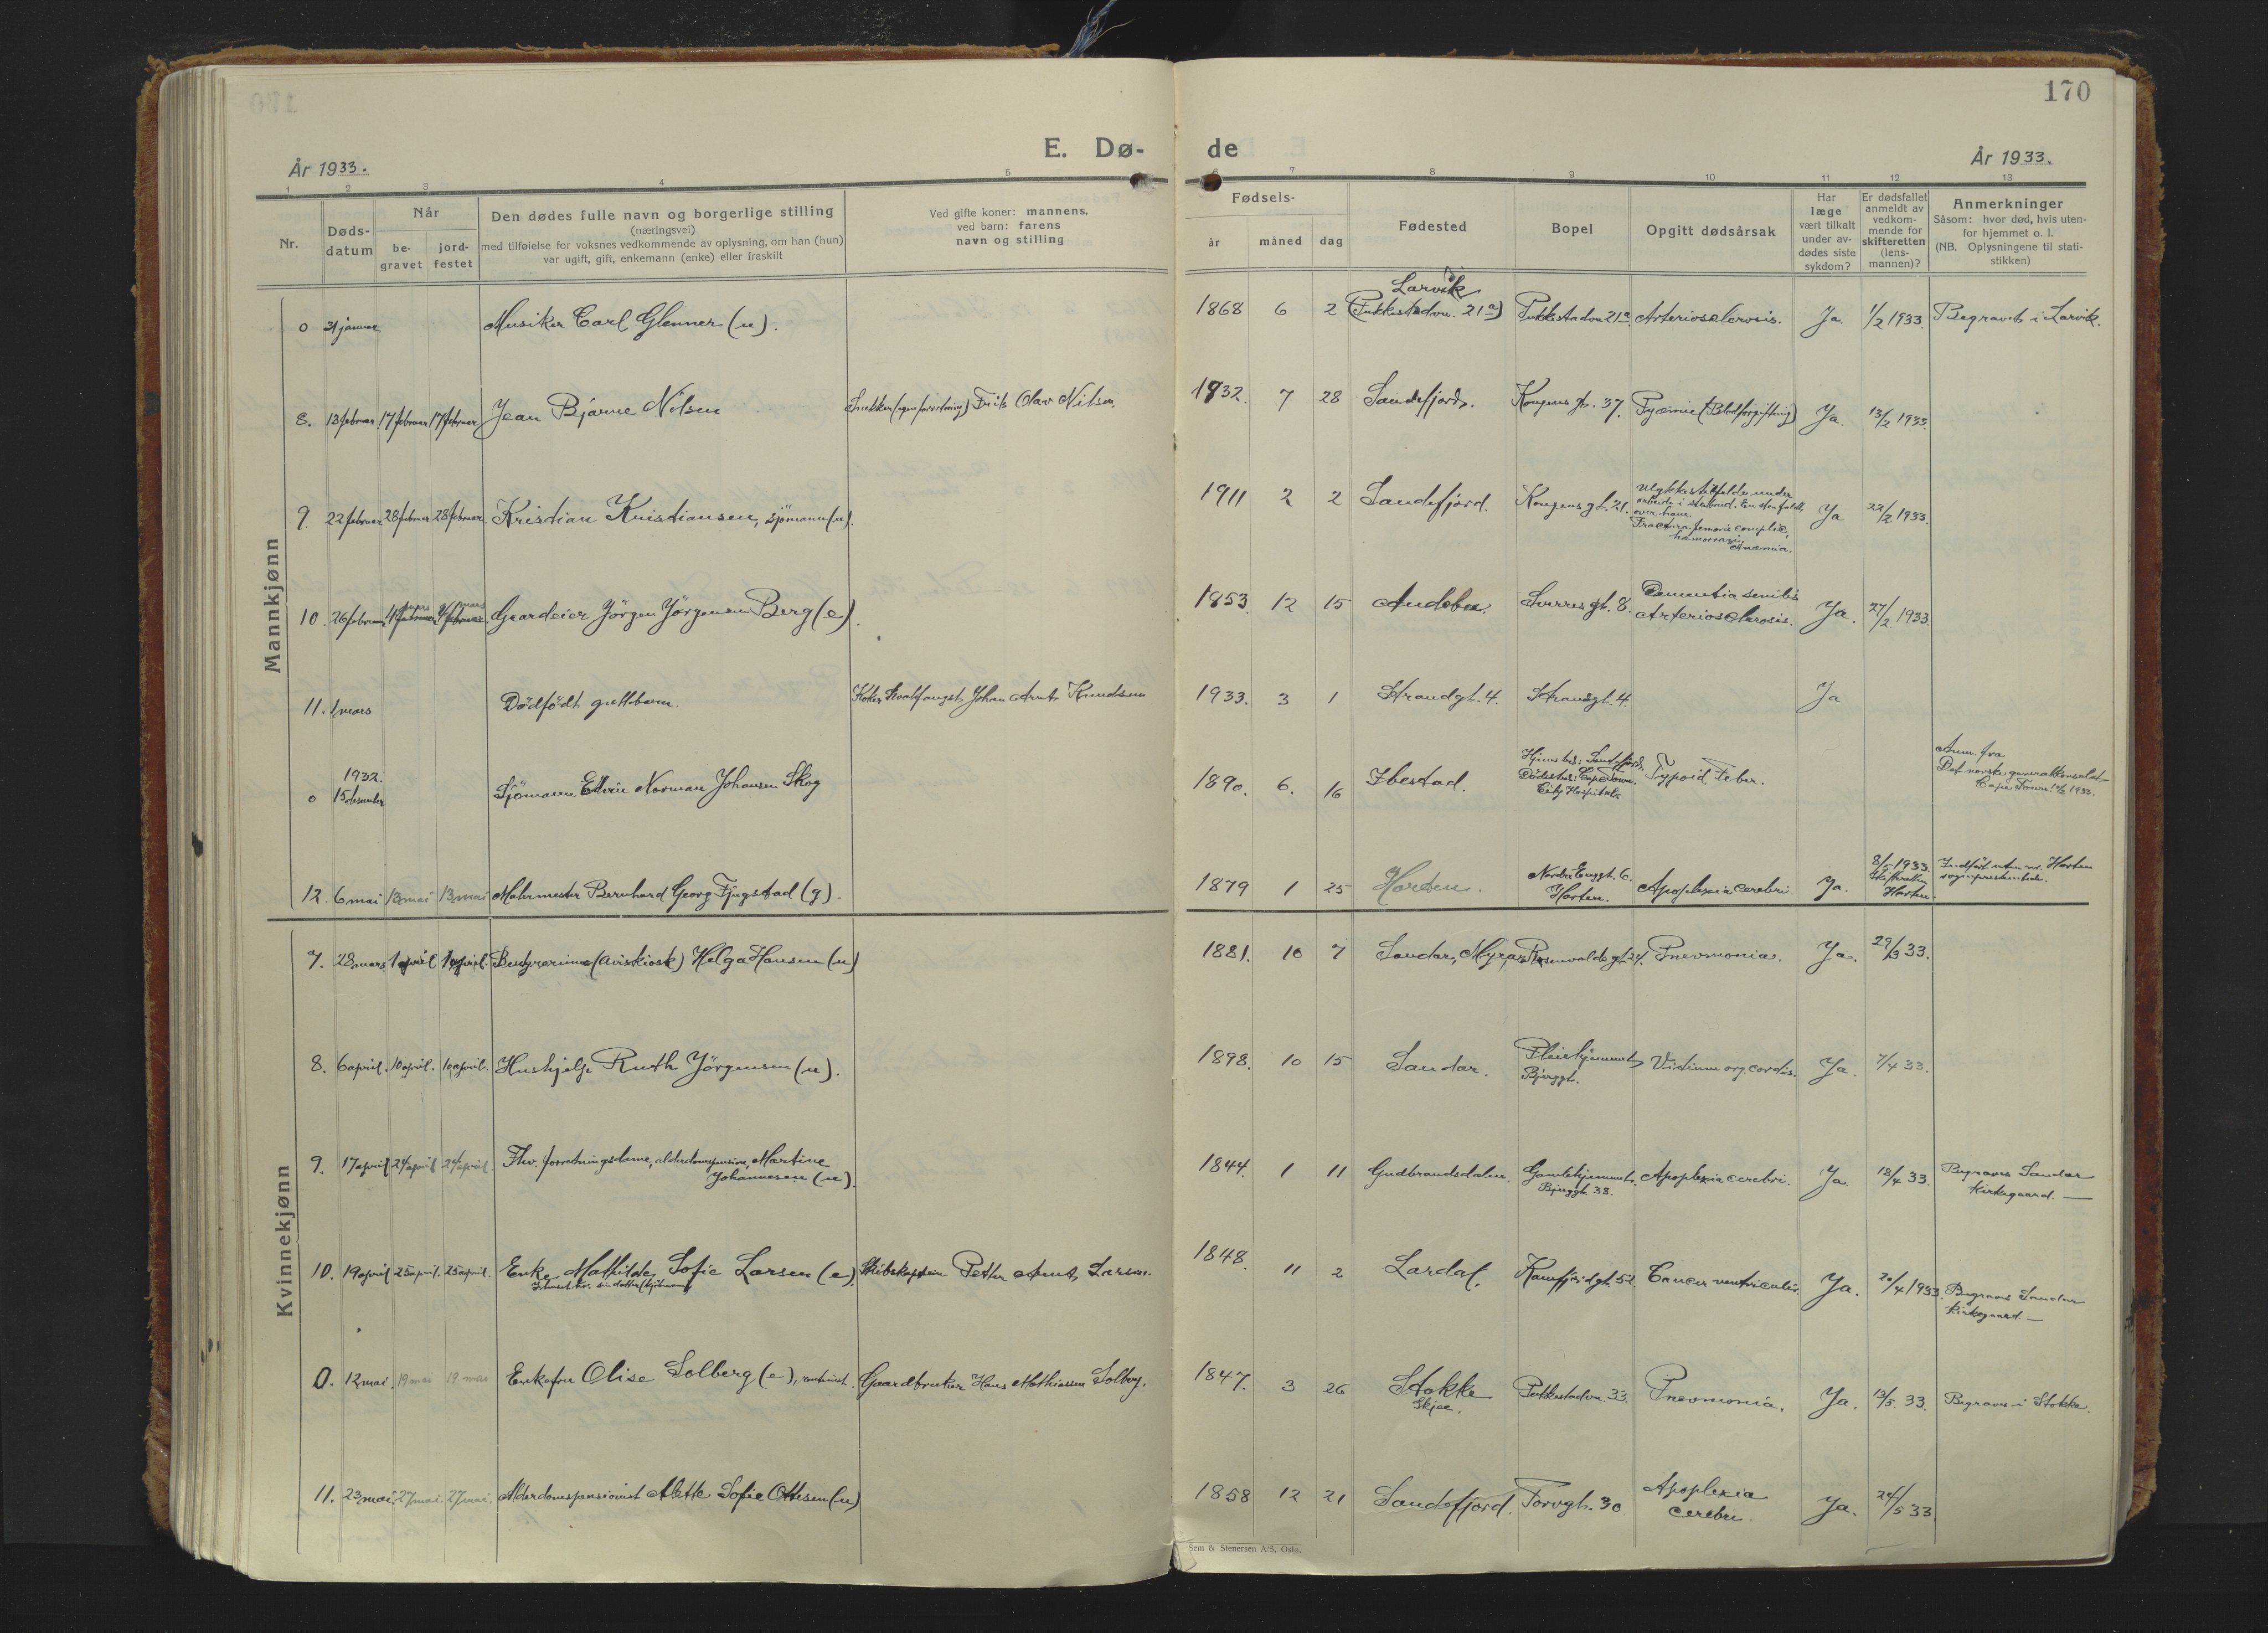 170
E. Dø-
de
År 1933.
År 1933.
1 2 3 4 5 6 7 8 9 10 11 12 13
Nr.
Døds-
datum
Når
be-
gravet
jord-
festet
Den dødes fulle navn og borgerlige stilling
(næringsvei)
med tilføielse for voksnes vedkommende av oplysning, om han (hun)
var ugift, gift, enkemann (enke) eller fraskilt
Ved gifte koner: mannens,
ved barn: farens
navn og stilling
Fødsels-
år måned dag
Fødested
Bopel
Opgitt dødsårsak
Har
læge
vært tilkalt
under av-
dødes siste
sykdom?
Er dødsfallet
anmeldt av
vedkom-
mende for
skifteretten
(lens-
mannen)?
Anmerkninger
Såsom: hvor død, hvis uten-
for hjemmet o. l.
(NB. Oplysningene til stati-
stikken)
Mannkjønn
Larvik
0 31 januar Musiker Carl Glenner (u). 1868 6 2 (Pukkestadvn. 21a) Pukkestadvn 21a Arteriosclerosis. Ja. 1/2 1933. Begravet i Larvik.
8. 13 februar 17 februar 17 februar Jean Bjarne Nilsen Snekker (egen forretning) Olav Nilsen. 1932. 7 28 Sandefjord. Kongens gt. 37. Pyæmie (Blodforgiftning) Ja. 13/2 1933.
9. 22 februar 28 februar 28 februar Kristian Kristiansen, sjömann (u). 1911 2 2 Sandefjord. Kongens gt. 21. Ulykkestilfelde under
arbeide i stenbrud. En sten faldt
over ham.
Fractura femoris complic,
hæmorragi,
Anæmia. Ja 22/2 1933.
10. 26 februar 4 mars 4 mars Gaardeier Jörgen Jörgensen Berg (e). 1853 12 15 Andebu. Sverres gt. 8. Dementia senilis
Arteriosclerosis. Ja. 27/2 1933.
11. 1 mars Dödfödt guttebarn. Koker hvalfangst Johan Arnt Knudsen 1933. 3 1 Strandgt. 4. Strandgt. 4. Ja
1932.
0 15 desember Sjömann Edvin Norman Johansen Skog 1890. 6. 16 Ibestad. Hjemsted: Sandefjord.
Dödssted: Cape Town.
City Hospital. Typoid Feber. Anm. fra
Det norske generalkonsulat
Cape Town 1933.
12. 6 mai 13 mai 13 mai Malermester Bernhard Georg Fjugstad (g). 1879 1 25 Horten. Nordre Enggt. 6.
Horten. Apoplexia cerebri. Ja. 8/5 1933.
Skifteretten
Horten. Indfört uten nr. Horten
sogneprestembede.
Kvinnekjønn
7. 28 mars 1 april 1 april. Bestyrerinne (Aviskiosk) Helga Hansen (u) 1881. 10 7 Sandar, Myra Rosenvolds gt. 24. Pnevmonia. Ja. 29/3 33.
8. 6 april. 10 april. 10 april. Hushjelp Ruth Jörgensen (u). 1898. 10 15 Sandar. Pleiehjemmet
Bjerggt. Vitium org. cordis. Ja. 7/4 33.
9. 17 april 24 april 24 april Fhv. forretningsdame, alderdomspension, Martine
Johannesen (u). 1844. 1 11 Gudbrandsdalen. Gamlehjemmet.
Bjerggt. 38. Apoplexia cerebri. Ja 18/4 33. Begraves Sandar
Kirkegaard. —
10. 19 april 25 april. 25 april. Enke Mathilde Sofie Larsen (e),
hos sin datter Skibskaptein Petter Arnt Larsen. 1848. 11 2 Lardal. Kamfjordgt. 52. Cancer ventriculi. Ja. 20/4 1933. Begraves Sandar
Kirkegaard. —
0. 12 mai. 19 mai 19 mai Enkefru Olise Solberg (e), Gaardbruker Hans Mathiassen Solberg. 1847. 3 26 Stokke
Skjee. Pukkestadvn. 33. Pnevmonia. Ja. 13/5. 33. Begraves i Stokke.
11. 23 mai. 27 mai. 27 mai. Alderdomspensionist Alette Sofie Ottesen (u) 1858 12 21 Sandefjord. Torvgt. 30 Apoplexia
cerebri. Ja. 24/5 33.
Sem & Stenersen A/S, Oslo.